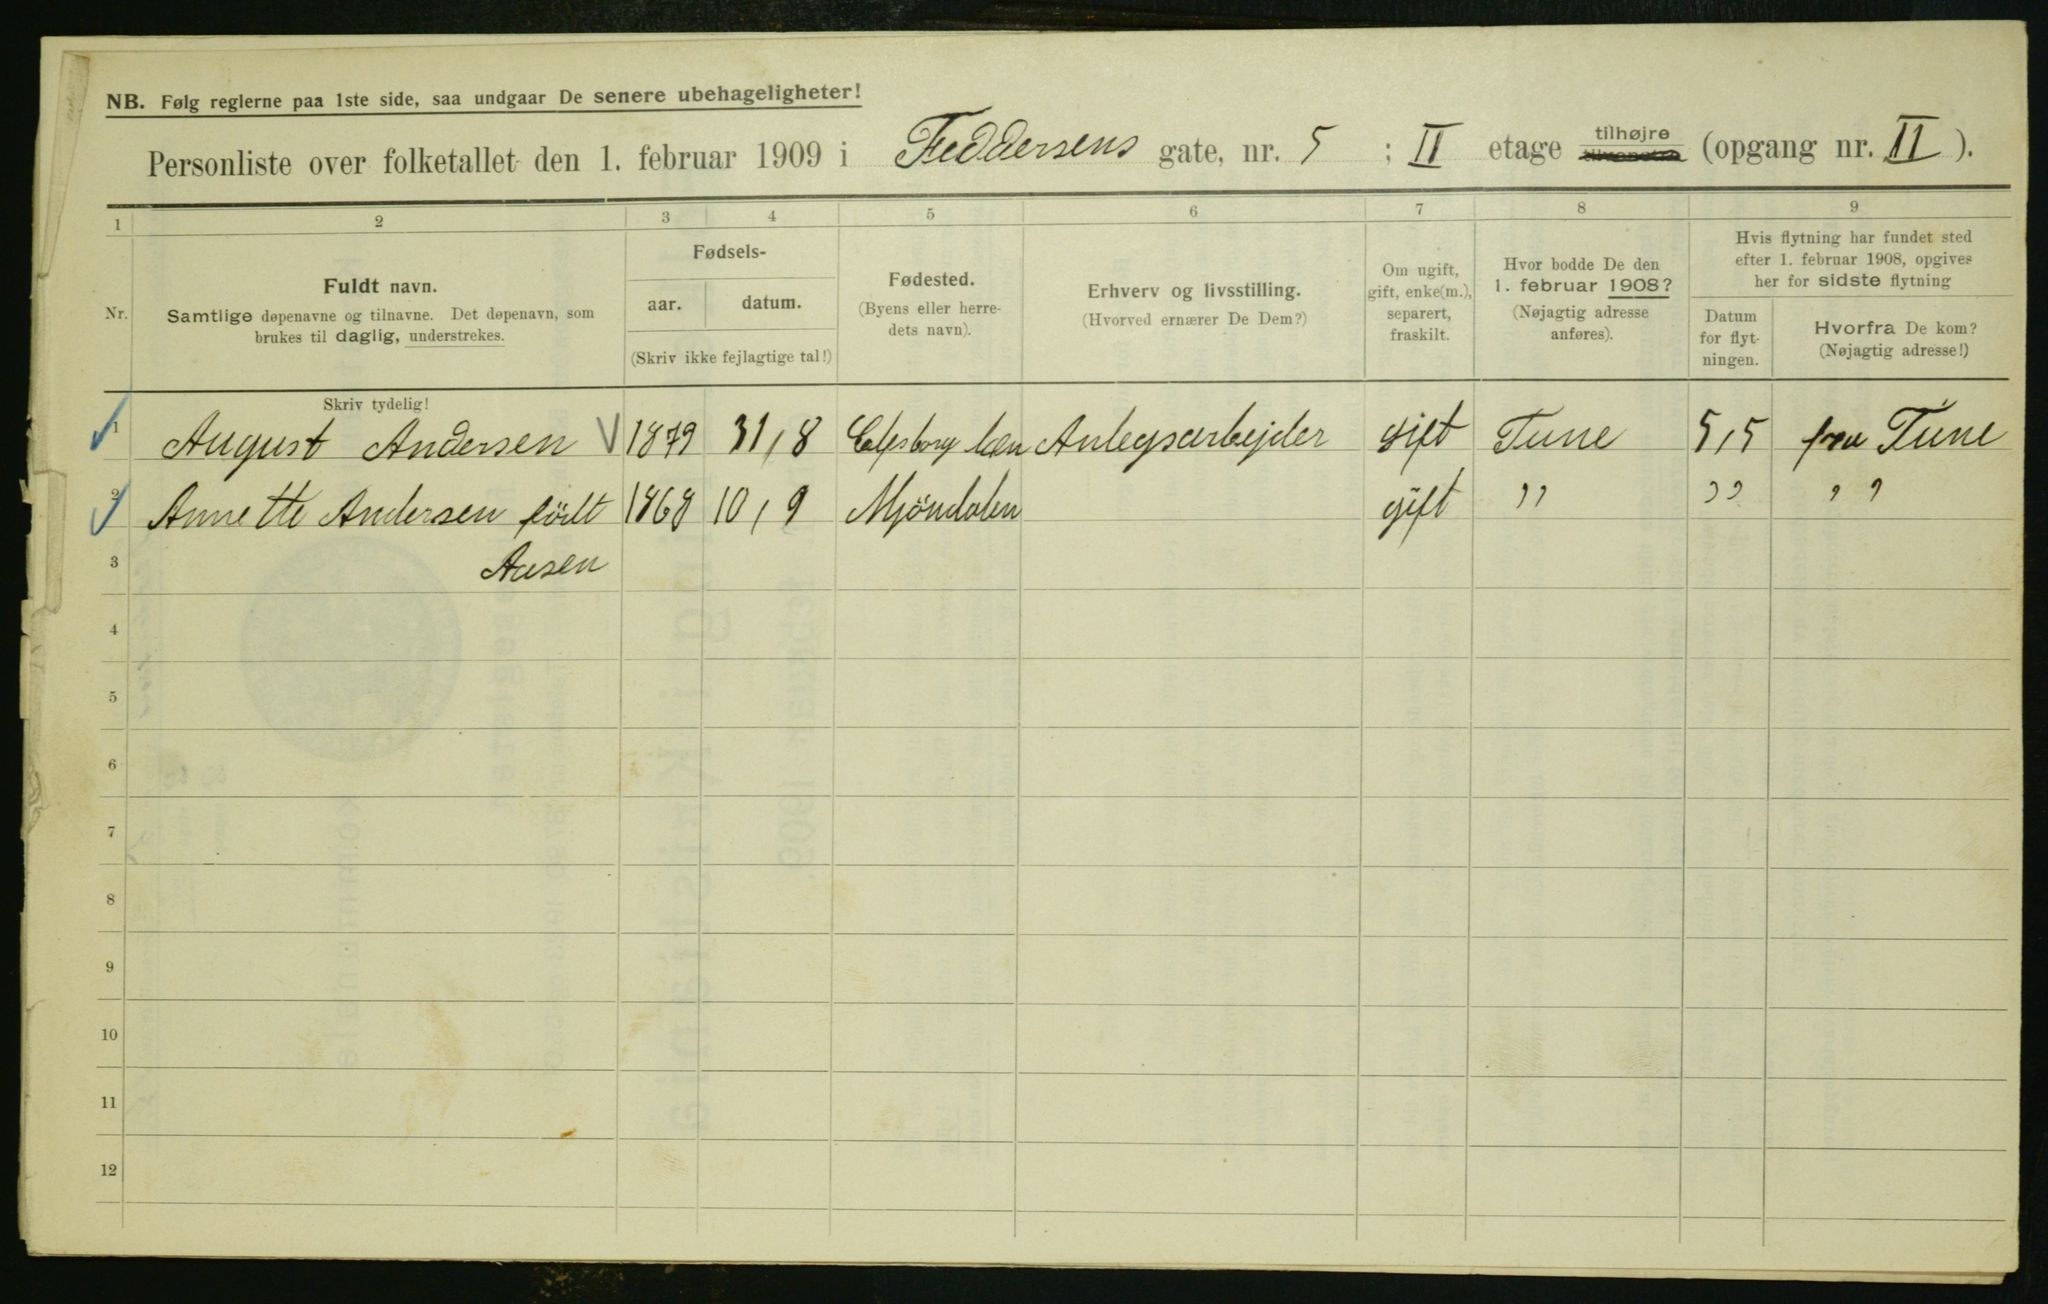 NB. Følg reglerne paa 1ste side, saa undgaar De senere ubehageligheter!
Personliste over folketallet den 1. februar 1909 i Feddersens gate, nr. 5 ; II etage tilhøjre tilvenstre (opgang nr. II ).
1 2 3 4 5 6 7 8 9
Nr.
Fuldt navn.
Samtlige døpenavne og tilnavne. Det døpenavn, som
brukes til daglig, understrekes.
Fødsels-
aar. datum.
(Skriv ikke fejlagtige tal!)
Fødested.
(Byens eller herre-
dets navn).
Erhverv og livsstilling.
(Hvorved ernærer De Dem?)
Om ugift,
gift, enke(m.),
separert,
fraskilt.
Hvor bodde De den
1. februar 1908?
(Nøjagtig adresse
anføres).
Hvis flytning har fundet sted
efter 1. februar 1908, opgives
her for sidste flytning
Datum
for flyt-
ningen.
Hvorfra De kom?
(Nøjagtig adresse!)
Skriv tydelig!
1 August Andersen 1879 31/8 Elfsborg len Anlegsarbejder gift Tune 5/5 fra Tune
2 Annette Andersen født 1868 10/9 Mjöndalen gift " " "
3 Aasen
4
5
6
7
8
9
10
11
12